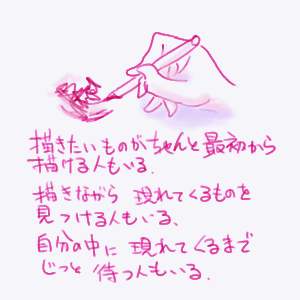 描きたいものがちゃんと最初から
描ける人もいる.
描きながら 現れてくるものを
見つける人もいる、
自分の中に 現れてくるまで
じっと 待つ人もいる.